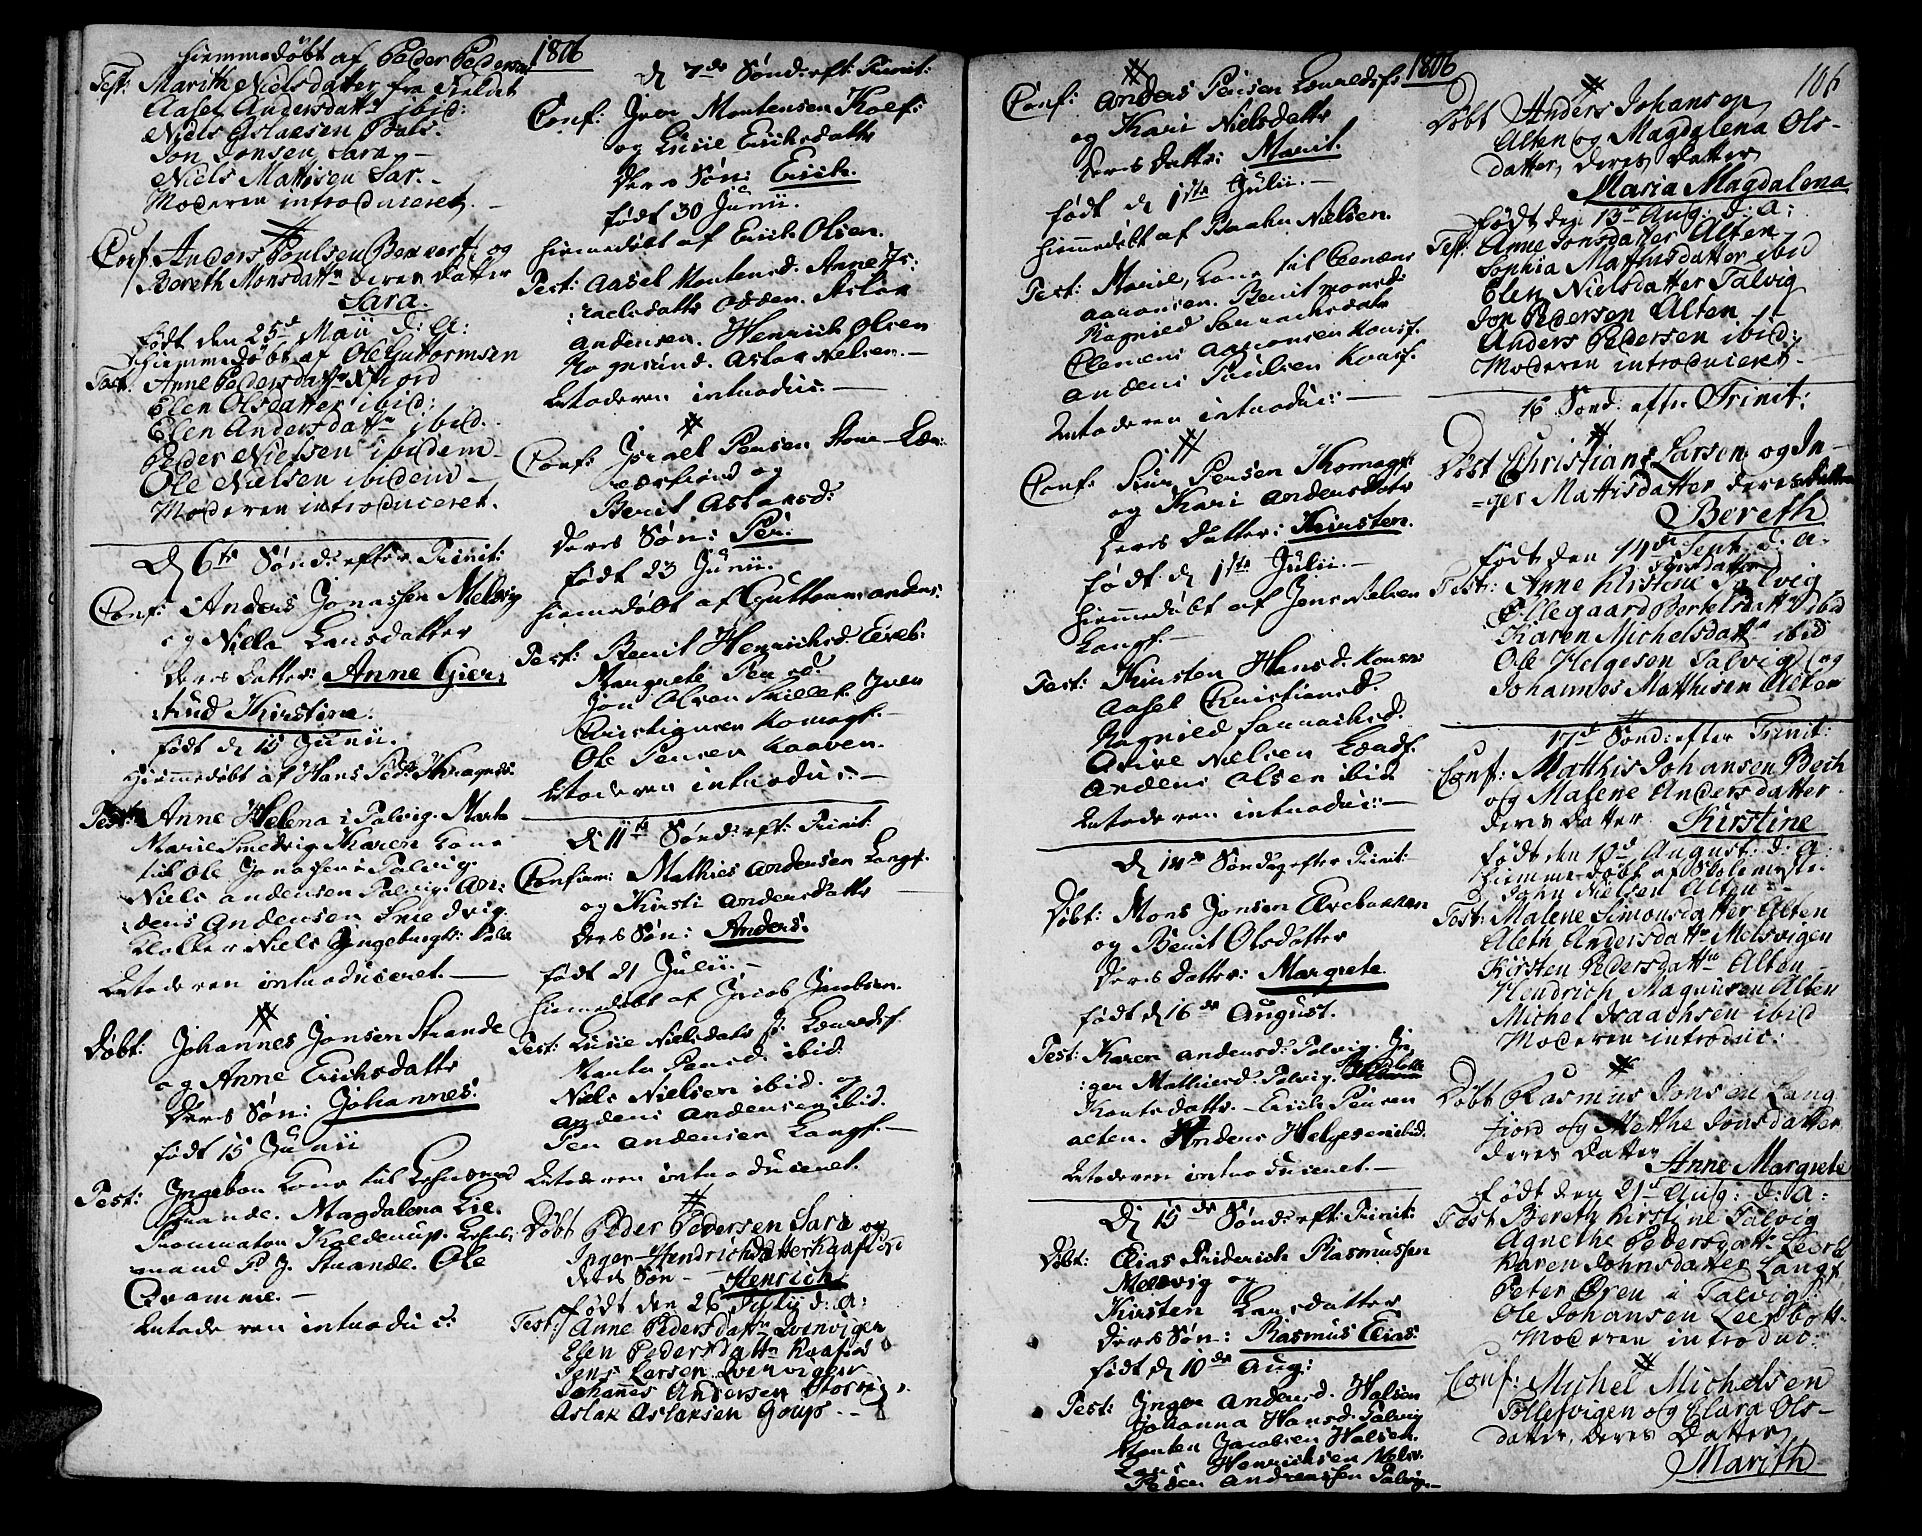 hiemmedøbt af Peder Pedersen
Test: Marith Nielsdatter fra
Aasel Andersdatter ibid:
Niels Aslaksen Buls.
Jon Jonsen Sara –
Niels Mattisen Sar. –
Moderen introduceret. –
Conf: Anders Poulsen Beaverf. og
Bereth Monsdattr deres datter
Sara.
født den 25d Maii d: A:
hiemmedøbt af Ole Guttormsen
Test: Anne Pedersdattr Xfiord
Elen Olsdatter ibid:
Elen Andersdattr ibid.
Peder Nielsen ibidem –
Ole Nielsen ibidem –
Moderen introduceret.
D 6te Sønd: efter Trinit:
Conf: Anders Jonassen Melsvig
og Niella Larsdatter
deres datter: Anne Gier-
trud Kirstine.
født d 15 Junii.
hiemmedøbt af Hans Peds:
Test: Anne Helena i Talvig. Marte
Marie Smedvig Karen Kone
til Ole Jonasen i Talvig.
Niels Andersen Talvig. An:
ders Andersen Smedvig.
Niels Ingebrigts: Talv
Moderen introduceret. –
Døbt: Johannes Jonsen Strande
og Anne Erichsdattr
deres Søn: Johannes.
født 15 Junii
Test: Ingebor Kone til Lehnsmand
Strande. Magdalena Lie.
Procurator Kalderup. Lehns:
mand P. J. Strande. Ole
Qvamme. –
Moderen introduc:
1806
D 7de Sønd: eft: Trinit:
Conf: Iver Mortensen Koef:
og Lusie Erichsdattr
deres Søn: Erich.
født 30 Junii.
hiemedøbt af Erich Olsen.
Test: Aasel Mortensd. Anne Is:
raelsdattr Aslak
Andersen. Henrich Olsen
Rognsund. Aslak Nielsen. –
Moderen introduc: –
Conf: Israel Persen
og
Berit Aslaksd:
deres Søn: Per.
født 23 Junii.
hiemedøbt af Guttorm Anders:
Test: Berit Henrichsd.
Margrete Persd.
Jon Olsen Iver
Christiansen Komagf. –
Ole Persen Kaaven.
Moderen introduc: –
D 11te Sønd: eft: Trinit:
Confirm: Mathies Andersen Langf.
og Kirsti Andersdattr
deres Søn: Anders.
født d 1 Julii. –
hiemedøbt af Jacob Jacobsen.
Test: Lusie Nielsdatr
Marta Persd. ibid.
Niels Nielsen ibid. og
Anders Andersen ibid.
Per Andersen Langf. –
Moderen introduceret.
Døbt Peder Pedersen Sara og
Inger Hendrichdatter Kaafiord
deres Søn – Henrich
født den 26 Julii d: A:
Test: Anne Pedersdattr Qvenvigen
Elen Pedersdattr Kaafio
Jens Larsen Qvenvigen
Johannes Andersen Storvig.
Aslak Aslaksen Goups. –
1806
106
Conf: Anders Persen
og Kari Nielsdattr
deres Dattr: Marit.
født d 1ste Julii. –
hiemmedøbt af Nielsen.
Test: Marie, Kone til Clemens
Aaronsen. Berit Monsd:
Ragnild
Clemens Aaronsen Korsf.
Anders Paulsen Korsf.
Moderen introduc: –
Conf: Siur Persen Komagf:
og Kari Andersdatr
deres datter: Kirsten.
født d 1ste Julii. –
hiemmedøbt af Jens Nielsen
Langf. –
Test: Kirsten Hansd.
Aasel Christiansd.
Ragnild
Nielsen
Anders Olsen ibid
Moderen introduc: –
D 14de Søndag efter Trinit:
Døbt: Mons Jonsen
og Berit Olsdatter
deres datter: Margrete.
født d 16de August.
Test: Karen Andersd: Talvig. In
:ger Mathiesd. Talvig.
Knutsdattr. – Erich Persen
Alten. Anders Helgesen ibid.
Moderen introduceret. –
D 15de Sønd: eft: Trinit:
Døbt: Elias Friderich Rasmussen
Melsvig og
Kirsten Larsdatter
deres Søn: Rasmus Elias.
født d 10de Aug:
Test: Inger Andersd.
Johanna Hansd. Talvig
Morten Jacobsen
Lars Henrichsen Melsv.
Peder Andreassen Talvig. –
Døbt Anders Johansen
Alten og Magdalena Ols-
datter, deres datter
Maria Magdalena
født den 13d Aug. d: A:
Test: Anne Jonsdatter Alten
Sophia Mathisdatter ibid
Elen Nielsdatter Talvig
Jon Pedersen Alten –
Anders Pedersen ibid:
Moderen introduceret. –
16 Sønd. efter Trinit:
Døbt Christian Larsen og In-
=ger Mattisdatter deres datter
Bereth
født den 14de Sept. d: A:
Test: Anne Kirstine Jonsdatter Talvig
Ellegaard Bertelsdattr ibid
Karen Michelsdattr ibid
Ole Helgesen Talvig og
Johannes Matthisen Alten
17d Sønd: efter Trinit:
Conf: Matthis Johansen Bech
og Malene Andersdatter
deres datter Kirstine
født den 10d August: d: A:
hiemmedøbt af Skolemstr.
John Nielsen Alten –
Test: Malene Simonsdatter Alten
Aleth Andersdattr Melsvigen
Kirsten Pedersdattr Alten –
Hendrich Magnusen Alten
Michel Isaachsen ibid
Moderen introduc:
Døbt Rasmus Jonsen Lang
fiord og Methe Jonsdatter
deres datter
Anne Margrete
født den 21d Aug: d: A:
Test Bereth Kirstine Talvig
Agnethe Pedersdattr
Karen Johnsdatter Langf
Peter Øren i Talvig
Ole Johansen Leerbott.
Moderen introduc:
Conf: Michel Michelsen
Tollefvigen og Clara Ols-
datter, deres Datter
Marith